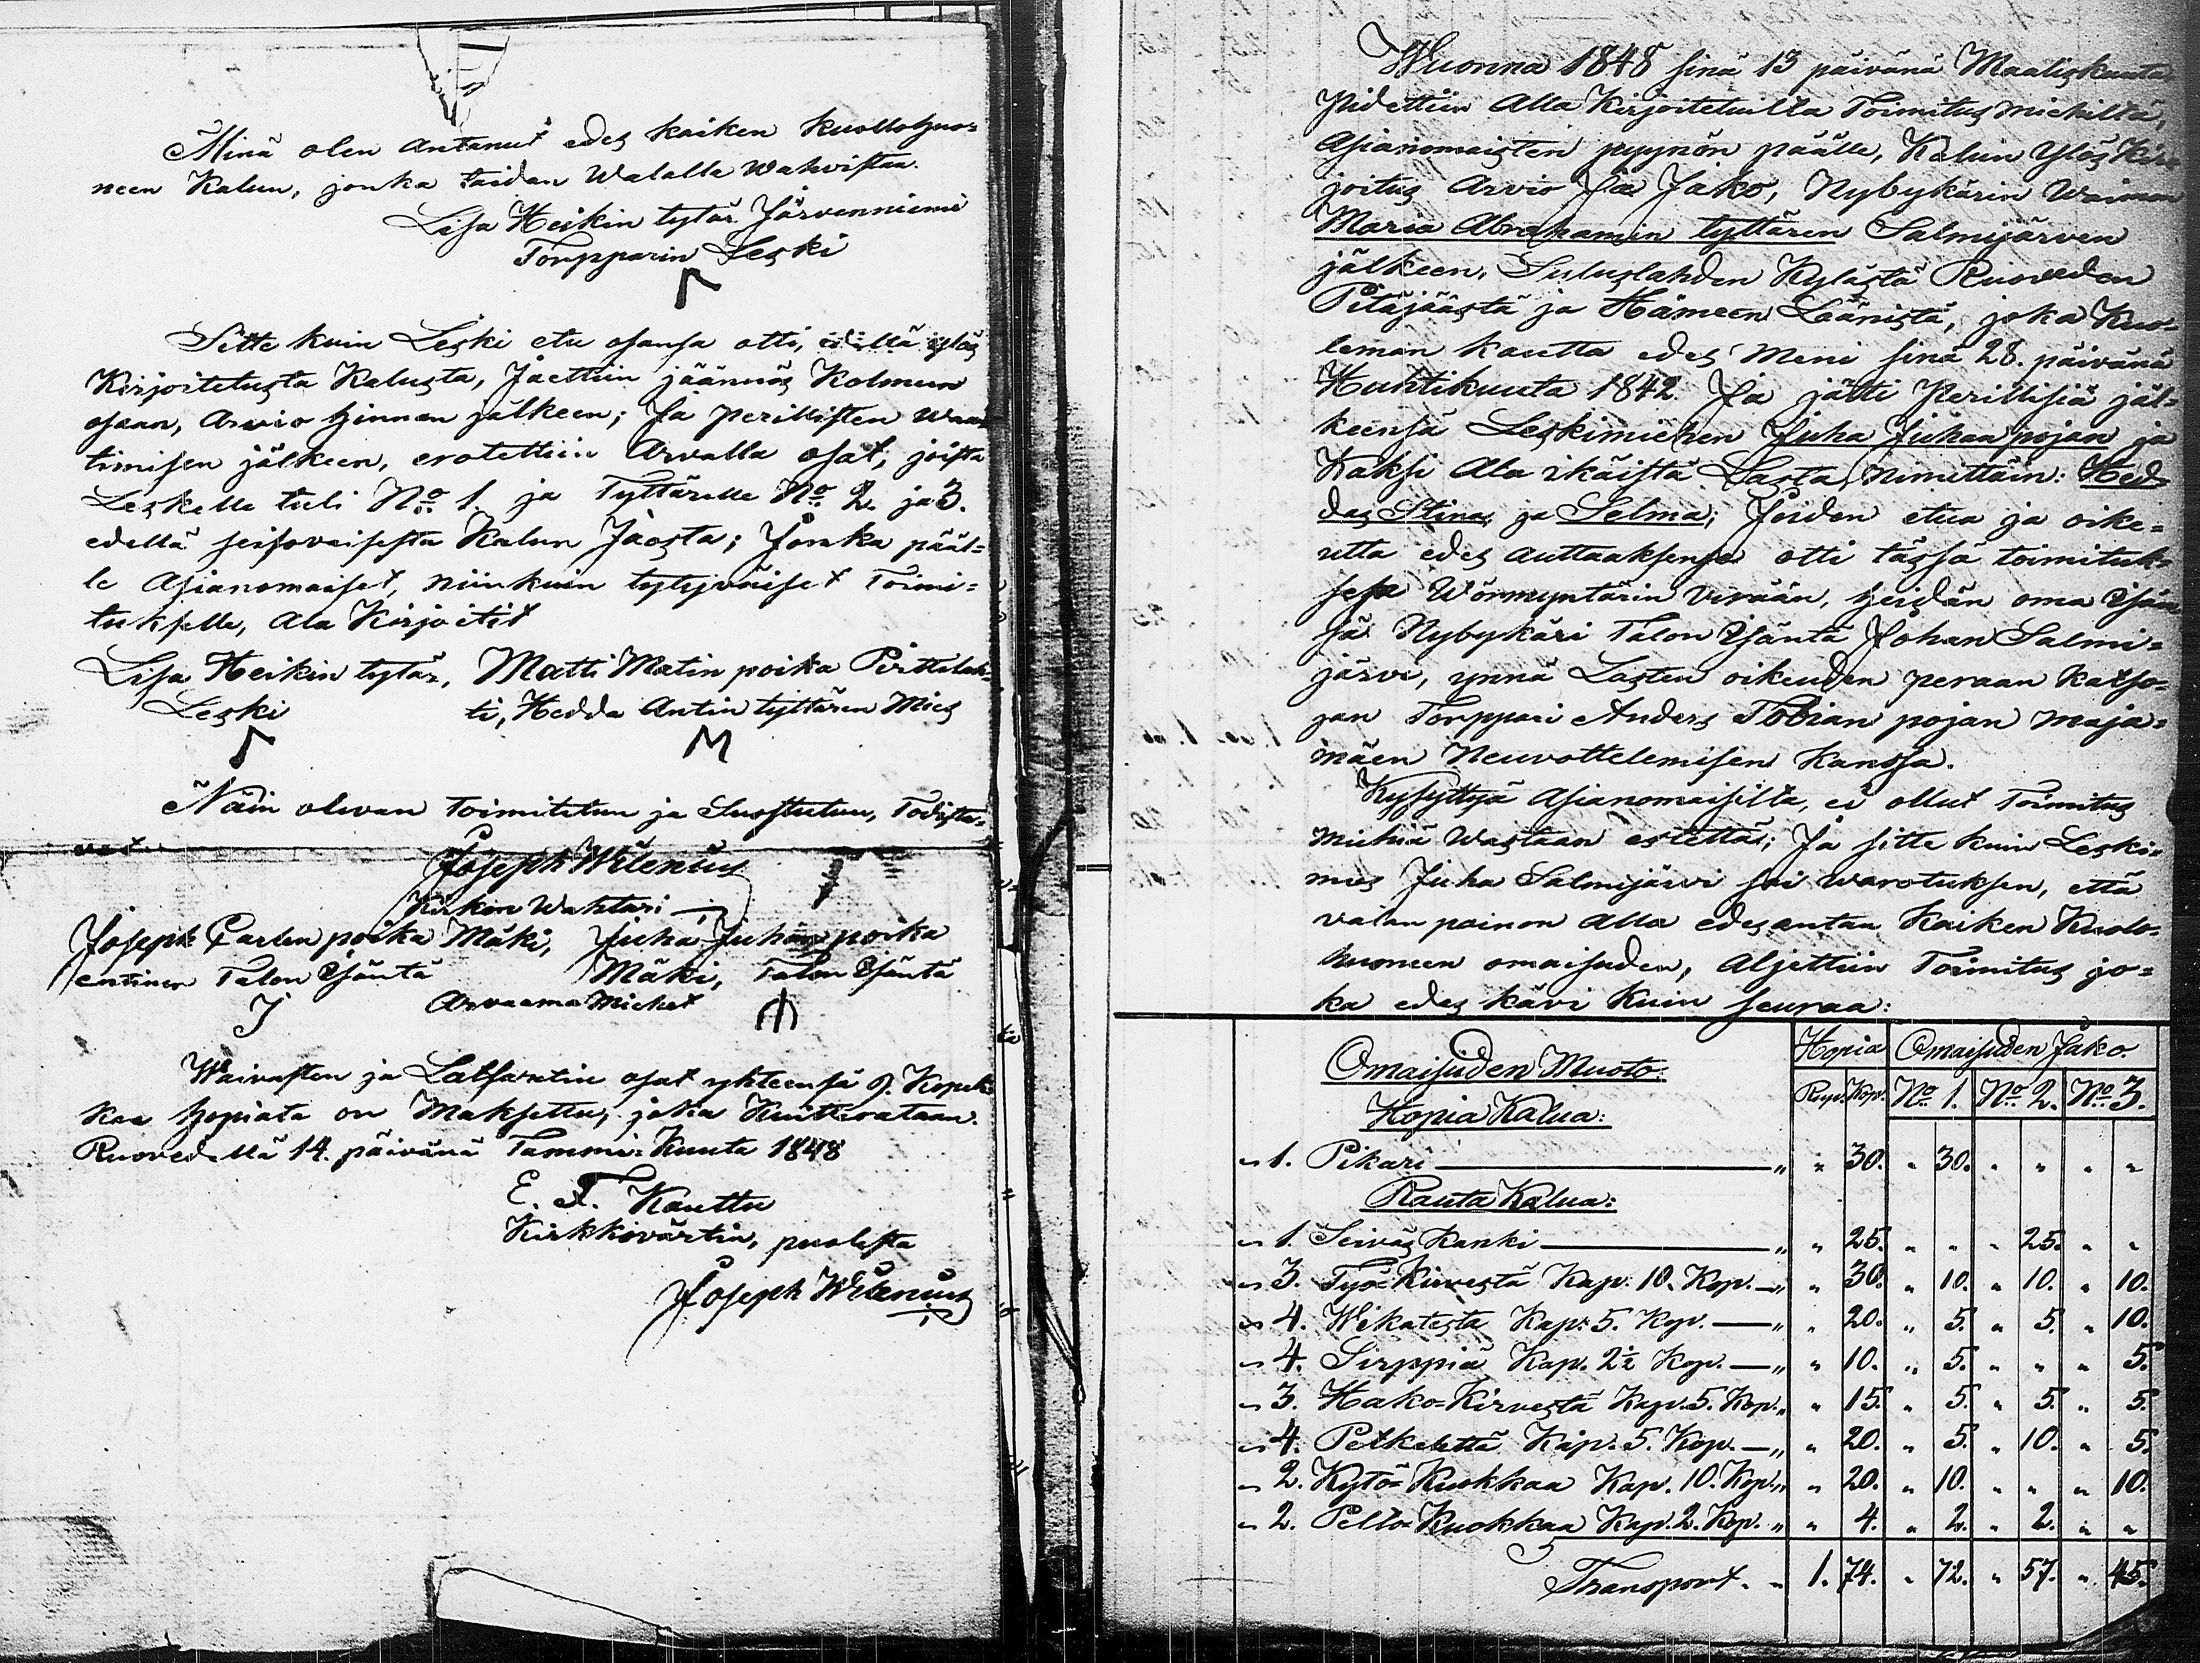 Minä olen antanut edes kaiken kuollohuo=
neen Kalun, jonka taidan Walalla Wahvistaa.
Lisa Heikin tytär Järvenniemi
Torpparin Leski
Sitte kuin Leski etu osansa otti, edellä ylös
Kirjoitetusta Kalusta, Jaettiin jäännös Kolmeen
osaan, Arvio hinnan jälkeen; Ja perillisten waa
timisen jälkeen, erotettiin Arvalla osat, joista
Leskelle tuli No. 1. ja Tyttärelle No. 2. ja 3.
edellä seisovaisesta Kalun Jaosta; Jonka pääl=
le Asianomaiset, niinkuin tytyväiset Toimi=
tukselle, Ala Kirjoitit
Lisa Heikin tytär, Matti Matin poika Pirttilah=
Leski ti, Hedda Antin tyttären Mies
Näin olevan toimitetun ja Suostutun, Todista=
vat
Joseph Wilenius
Kirkon Wahtari
Joseph Carlen poika Mäki, Juha Juhan poika
entinen Talon Isäntä Mäki, Talon Isäntä
Arvaama Miehet
Waivasten ja Latsaretin osat yhteensä 9. Kopek
kaa hopiata on Maksettu, joka Kuitterataan.
Ruovedellä 14. päivänä Tammi: Kuuta 1848
E. F. Kauttu
Kirkkovärtin, puolesta
Joseph Wilenius
Wuonna 1848 sinä 13 päivänä Maaliskuuta
Pidettiin Alla Kirjoitetuilta Toimitus miehiltä,
Asianomaisten pyynön päälle, Kalun Ylös Kir
joitus Arvio Ja Jako, Nybykärin Waimon
Maria Abrahamin tyttären Salmijärven
jälkeen, Suluslahden Kylästä Ruoveden
Pitäjäästä ja Hämeen Läänistä, joka Kuo=
leman kautta edes meni sinä 28. päivänä
Huhtikuuta 1842. Ja jätti Perillisiä jäl=
keensä Leskimiehen Juha Juhan pojan ja
Kaksi Ala ikäistä Lasta, nimittäin: Hed=
das Stina, ja Selma; Joiden etua ja oike=
utta edes auttaaksensa otti tässä toimituk=
sesa Wörmyntärin Virään, heidän oma Isän
sä Nybykäri Talon Isäntä Johan Salmi=
järvi, ynnä Lasten oikeuden peraan Katso=
jan Torppari Anders Tobian pojan Maja=
mäen Neuvottelemisen Kanssa.
Kysyttyä Asianomaisilta, ei ollut Toimitus
miehiä Wastaan estettä; Ja sitte kuin Leski=
mies Juha Salmijärvi sai warotuksen, että
valan painon alla edesantaa Kaiken Kuolo=
huoneen omaisuden, Aljettiin Toimitus jo=
ka edes kävi kuin seuraa:
Omaisuden Muoto. Hopia Omaisuden Jako.
Rup. Kop. No. 1. No. 2. No. 3.
Hopia Kalua:
" 1. Pikari " " 30. " 30. " " " "
Rauta Kalua:
" 1. Seiväs Kanki " " 25. " " " 25. " "
" 3. Työ=Kirvestä Kap. 10. Kop. " " 30. " 10. " 10. " 10.
" 4. Wikatesta Kap. 5. Kop. " " 20. " 5. " 5. " 10.
" 4. Sirppiä Kap. 2½ Kop. " " 10. " 5. " " " 5.
" 3. Hako=Kirvestä Kap. 5. Kop. " " 15. " 5. " 5. " 5.
" 4. Petkelettä Kap. 5. Kop. " " 20. " 5. " 10. " 5.
" 2. Kytö=Kuokkaa Kap. 10. Kop. " " 20. " 10. " " " 10.
" 2. Pelto=Kuokkaa Kap. 2. Kop. " " 4. " 2. " 2. " "
Transport. " 1. 74. " 72. " 57. " 45.